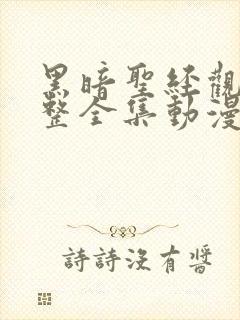 黑暗聖経觀
整全集動漫
詩詩沒有醬